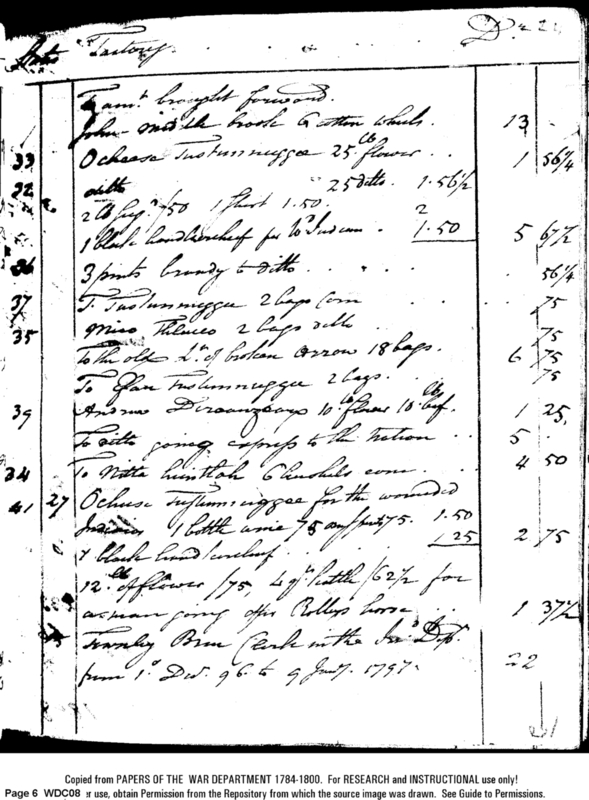 Factory. Dr 22
To amt. brought forward.
John Middle brook 6 Cotton Wheels. 13
33 Ocheese Tustunnuggee 25 lb flower . . 1 56 1/4
32 ditto 25 ditto. 1.56 1/2
2 lb Sugr. /50 1 Shirt 1.50. 2
1 black handkerchief for Wd. Indian. 1.50 5 67 1/2
36 3 pints brandy to ditto . . . 56 1/4
37 T. Tustunnuggee 2 bags Corn . . 75
35 Mico Thlucco 2 bags ditto 75
To the old of broken arrow 18 bags. 6 75
To Efau Tustunnuggee 2 bags. 75
39 Andrew 10 lb flower 10 lb beef. 1 25
To ditto going express to the Nation . . 5
34 To Nitta huntleh 6 bushels corn . . 4 50
41 27 Ocheese Tustunnuggee for the wounded
Indians 1 bottle wine 75 75. 1.50
1 black handkerchief . . . 1.25 2 75
12 lb of flower /75 4 qt. kettle /62 1/2 for
a man going after horse . . . 1 37 1/2
Clerk in the Inn. Dept.
from 1st Decr. 96. to 9 Jany. 1797. 22
Copied from PAPERS OF THE WAR DEPARTMENT 1784-1800. For RESEARCH and INSTRUCTIONAL use only!
Page 6 WDC08 er use, obtain Permission from the Repository from which the source image was drawn. See Guide to Permissions.